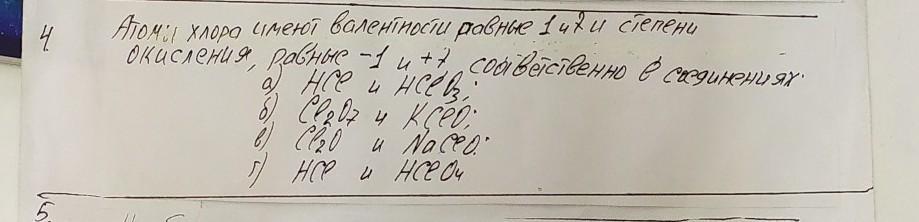 4 Атомы хлора имеют валентности равные 1 и 7 и степени
окисления, равные -1 и +7 соответственно в соединениях:
а) HCl и HClO3;
б) Cl2O7 и KClO;
в) Cl2O и NaClO;
г) HCl и HClO4
5.